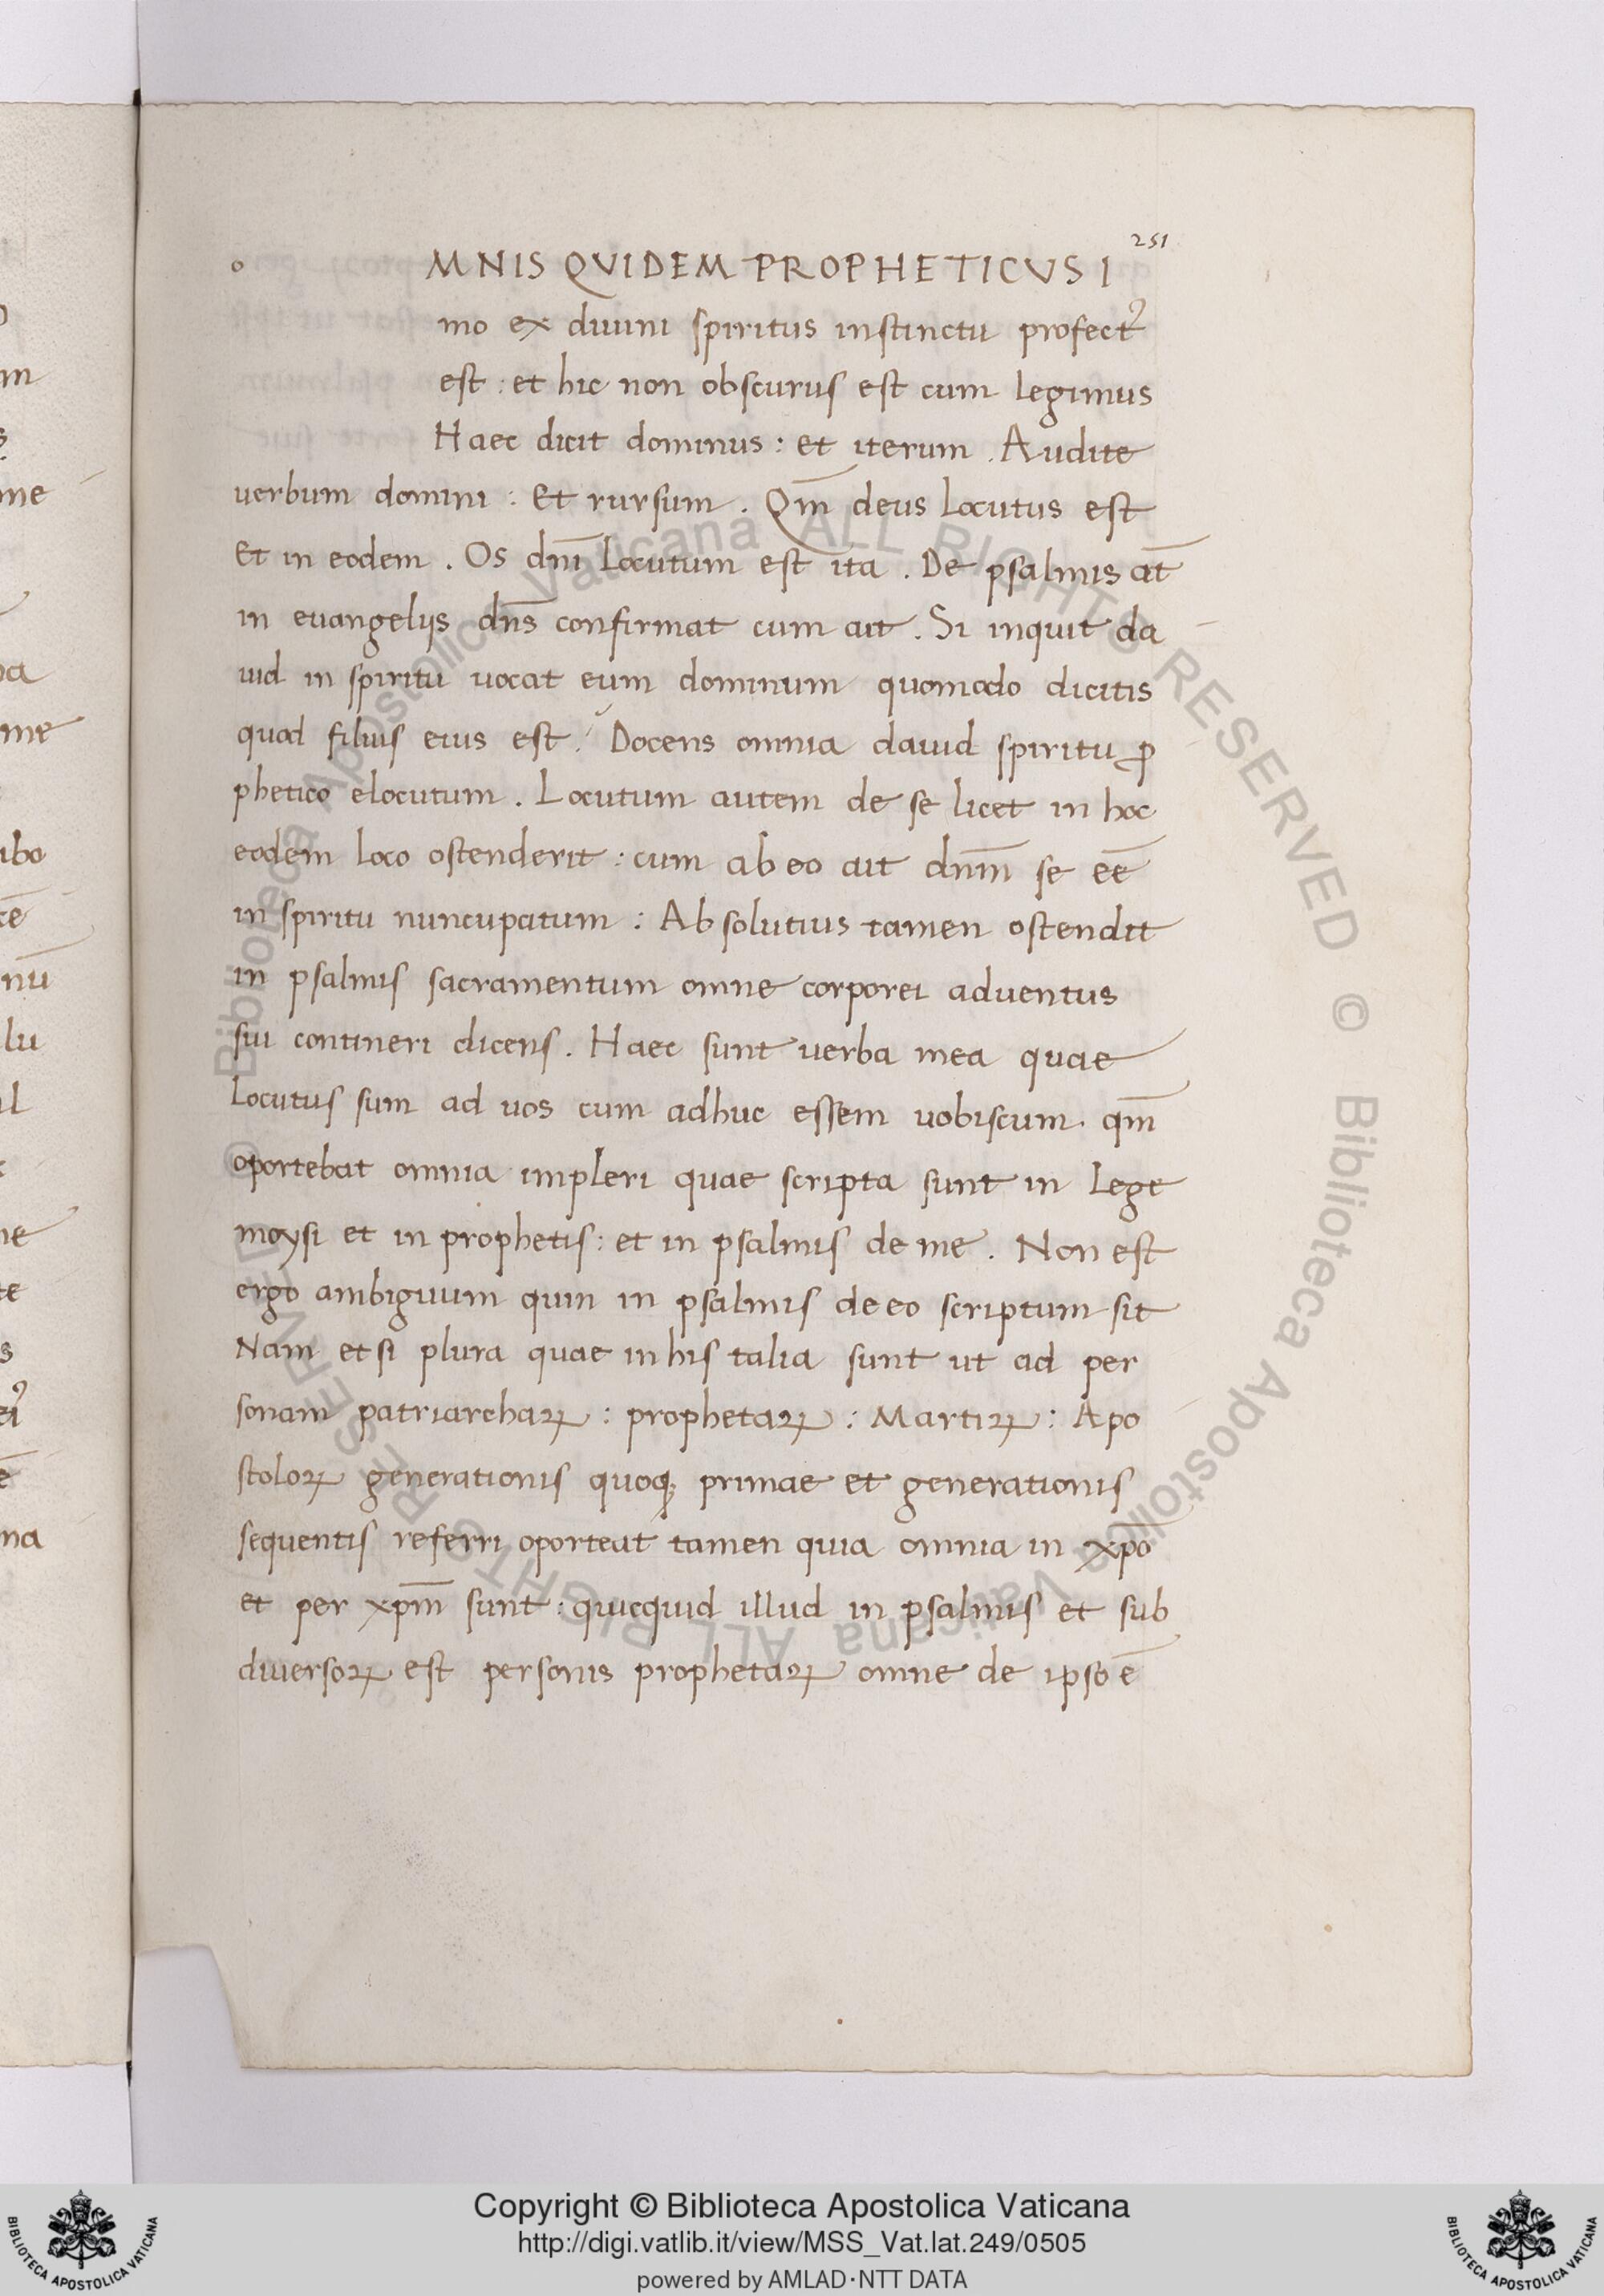 251
o MNIS QVIDEM PROPHETICVS I
mo ex diuini spiritus instinctu profect᷒
est : et hic non obscurus est cum legimus
Haec dicit dominus : et iterum . Audite
uerbum domini : Et rursum . Qm̄ deus locutus est
Et in eodem . Os dnī locutum est ita . De psalmis at̄
in euangelijs dn̄s confirmat cum ait . Si inquit da
uid in spiritu uocat eum dominum quomodo dicitis
quod filius eius est ? Docens omnia dauid spiritu ꝓ
phetico elocutum . Locutum autem de se licet in hoc
eodem loco ostenderit : cum ab eo ait dnm̄ se eē
in spiritu nuncupatum : Absolutius tamen ostendit
in psalmis sacramentum omne corporei aduentus
sui contineri dicens . Haec sunt uerba mea quae
Locutus sum ad uos cum adhuc essem uobiscum . qm̄
oportebat omnia impleri quae scripta sunt in Lege
moysi et in prophetis : et in psalmis de me . Non est
ergo ambiguum quin in psalmis de eo scriptum sit
Nam et si plura quae in his talia sunt ut ad per
sonam patriarchaꝝ : prophetaꝝ : Martiꝝ : Apo
stoloꝝ generationis quoqꝫ primae et generationis
sequentis referri oporteat tamen quia omnia in xp̄o
et per xpm̄ sunt : quicquid illud in psalmis et sub
diuersoꝝ est personis prophetaꝝ omne de ipso ē
© Biblioteca Apostolica Vaticana ALL RIGHTS RESERVED
© Biblioteca Apostolica Vaticana ALL RIGHTS RESERVED
Copyright © Biblioteca Apostolica Vaticana
http://digi.vatlib.it/view/MSS_Vat.lat.249/0505
powered by AMLAD·NTT DATA
BIBLIOTECA APOSTOLICA VATICANA
BIBLIOTECA APOSTOLICA VATICANA